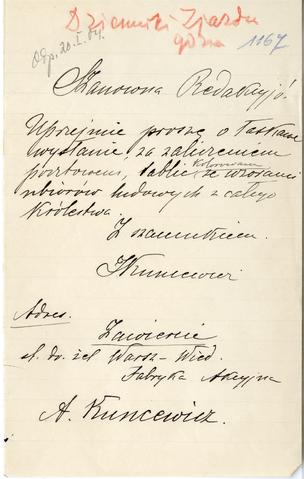 Dzienniki Zjazdu
góra 1167
Odp. 20.I.04.
Szanowna Redakcyjo.
Uprzejmie proszę o łaskawe
wysłanie, za zaliczeniem
pocztowem, tablic ze wzorami
Kolorowemi
ubiorów ludowych z całego
Królestwa.
Z szacunkiem.
Kuncewicz
Adres.
Zawiercie
st. dr. żel Warsz-Wied.
Fabryka Akcyjna
A. Kuncewicz.